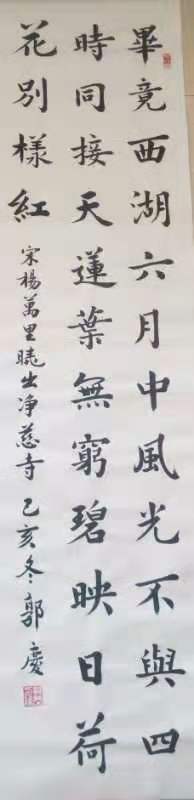 畢竟西湖六月中風光不與四
時同接天蓮葉無窮碧映日荷
花別樣紅
宋楊萬里曉出净慈寺 己亥冬郭慶